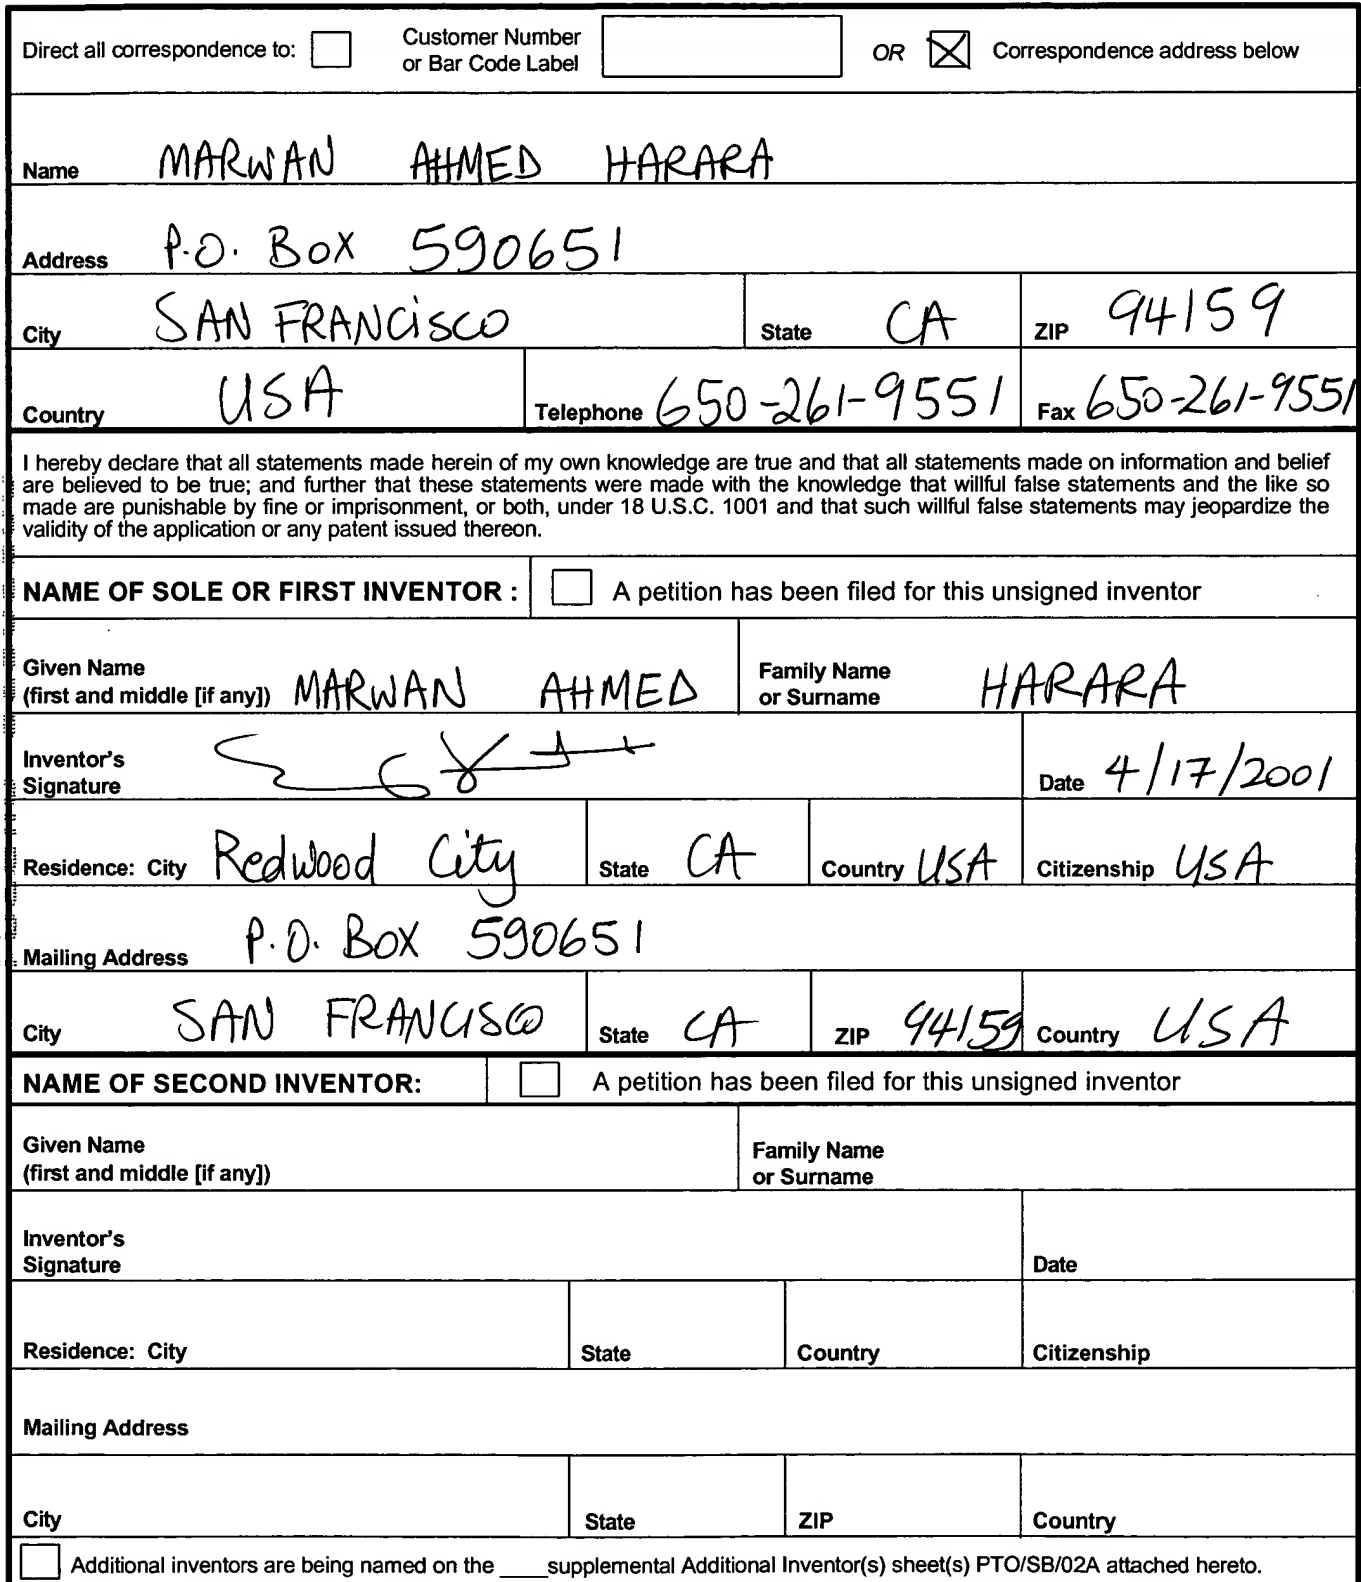 Direct all correspondence to: Customer Number or Bar Code Label OR Correspondence address below
Name MARWAN AHMED HARARA
Address P.O. BOX 590651
City SAN FRANCISCO State CA ZIP 94159
Country USA Telephone 650-261-9551 Fax 650-261-9551
I hereby declare that all statements made herein of my own knowledge are true and that all statements made on information and belief
are believed to be true; and further that these statements were made with the knowledge that willful false statements and the like so
made are punishable by fine or imprisonment, or both, under 18 U.S.C. 1001 and that such willful false statements may jeopardize the
validity of the application or any patent issued thereon.
NAME OF SOLE OR FIRST INVENTOR : A petition has been filed for this unsigned inventor
Given Name
(first and middle [if any]) MARWAN AHMED Family Name or Surname HARARA
Inventor's
Signature Date 4/17/2001
Residence: City Redwood City State CA Country USA Citizenship USA
Mailing Address P.O. BOX 590651
City SAN FRANCISCO State CA ZIP 94159 Country USA
NAME OF SECOND INVENTOR: A petition has been filed for this unsigned inventor
Given Name
(first and middle [if any]) Family Name or Surname
Inventor's
Signature Date
Residence: City State Country Citizenship
Mailing Address
City State ZIP Country
Additional inventors are being named on the ____supplemental Additional Inventor(s) sheet(s) PTO/SB/02A attached hereto.